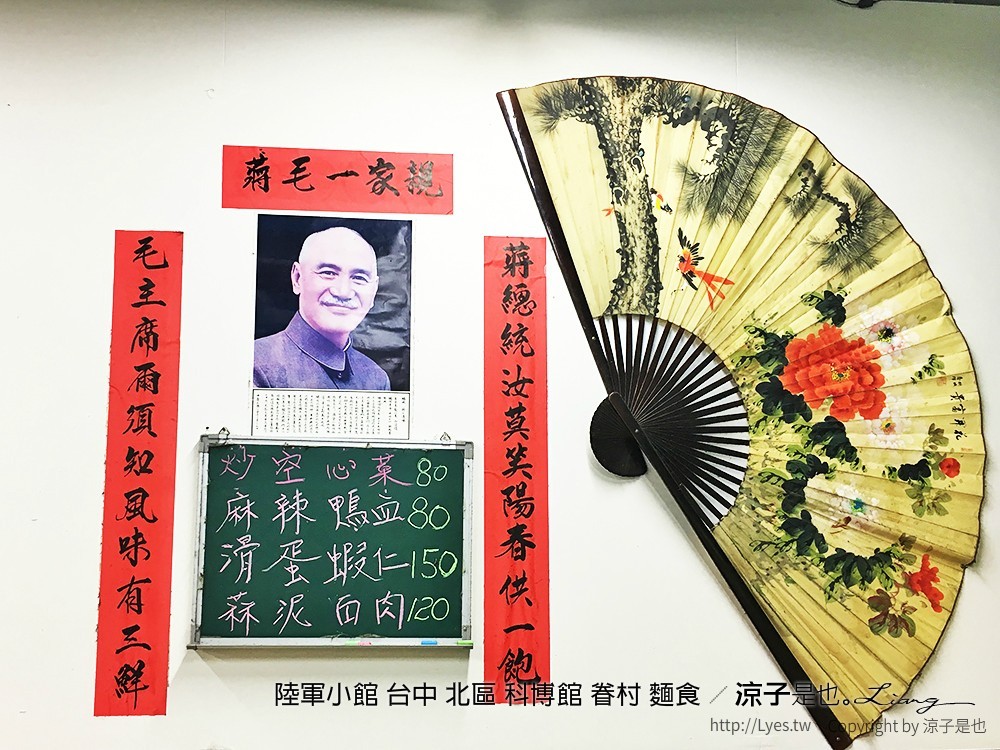 蔣毛一家親
蔣總統汝莫笑陽春供一飽
毛主席爾須知風味有三鮮
炒空心菜80
麻辣鴨血80
滑蛋蝦仁150
蒜泥白肉120
陸軍小館 台中 北區 科博館 眷村 麵食 ／ 涼子是也。Liang
http://Lyes.tw Copyright by 涼子是也